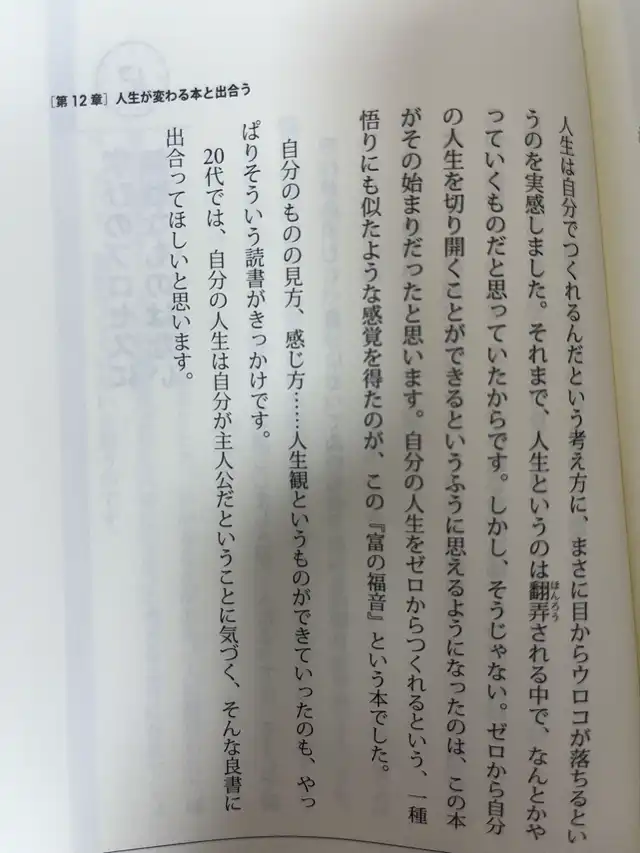 [第12章] 人生が変わる本と出合う
人生は自分でつくれるんだという考え方に、まさに目からウロコが落ちるとい
うのを実感しました。それまで、人生というのは翻弄される中で、なんとかや
ほんろう
っていくものだと思っていたからです。しかし、そうじゃない。ゼロから自分
の人生を切り開くことができるというふうに思えるようになったのは、この本
がその始まりだったと思います。自分の人生をゼロからつくれるという、一種
悟りにも似たような感覚を得たのが、この『富の福音』という本でした。
自分のものの見方、感じ方……人生観というものができていったのも、やっ
ぱりそういう読書がきっかけです。
20代では、自分の人生は自分が主人公だということに気づく、そんな良書に
出合ってほしいと思います。